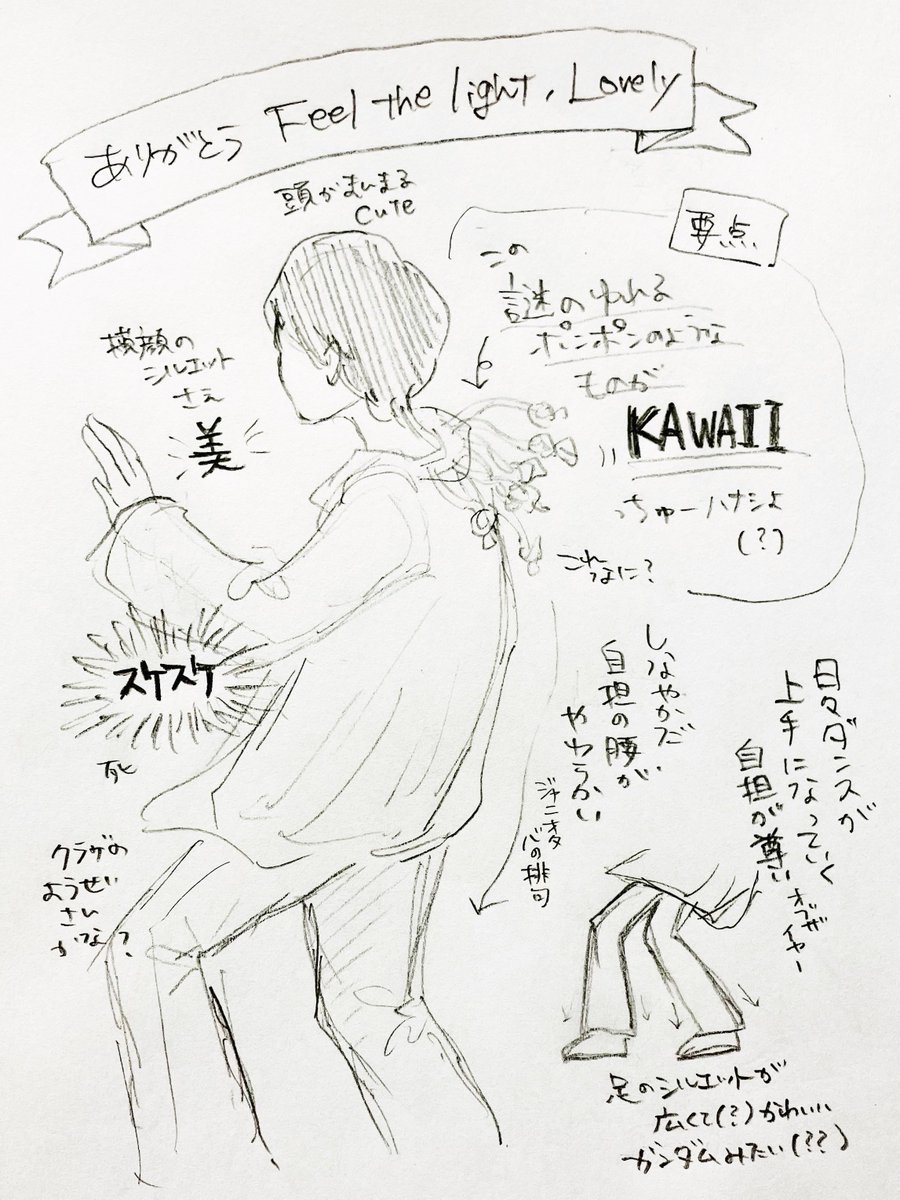 ありがとう Feel the light, Lovely
頭がまいまる
cute
要点
この
謎のゆれる
ポンポンのような
ものが
KAWAII
っちゅーハナシよ
(?)
横顔の
シルエット
さえ
美
これなに?
スケスケ
死
クラゲの
ようせい
さん
かな?
しなやかだ
自担の腰が
やわらかい
ジャニオタ
心の俳句
日々ダンスが
上手になっていく
自担が尊い
オブザイヤー
足のシルエットが
広くて(?)かわいい
ガンダムみたい(??)